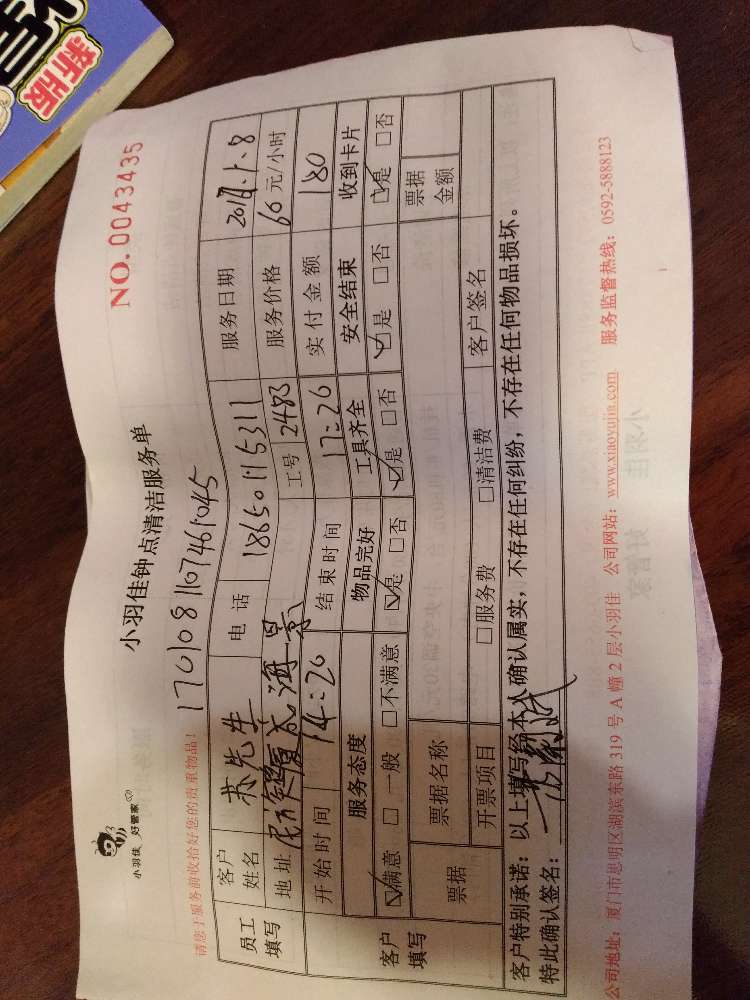 新版
小羽佳 好管家
小羽佳钟点清洁服务单
NO. 0043435
请您于服务前收拾好您的贵重物品!
员工填写 客户姓名 苏先生 电话 18650115311 服务日期
地址 海景 工号 2483 服务价格 60 元/小时
开始时间 14:20 结束时间 17:20 实付金额 180
客户填写 服务态度 物品完好 工具齐全 安全结束 收到卡片
☑满意 □一般 □不满意 ☑是 □否 ☑是 □否 ☑是 □否 ☑是 □否
票据 票据名称 票据金额
开票项目 □服务费 □清洁费 客户签名
客户特别承诺:以上填写经本人确认属实,不存在任何纠纷,不存在任何物品损坏。
特此确认签名:
公司地址:厦门市思明区湖滨东路 319 号 A 幢 2 层小羽佳 公司网站:www.xiaoyujia.com 服务监督热线:0592-5888123